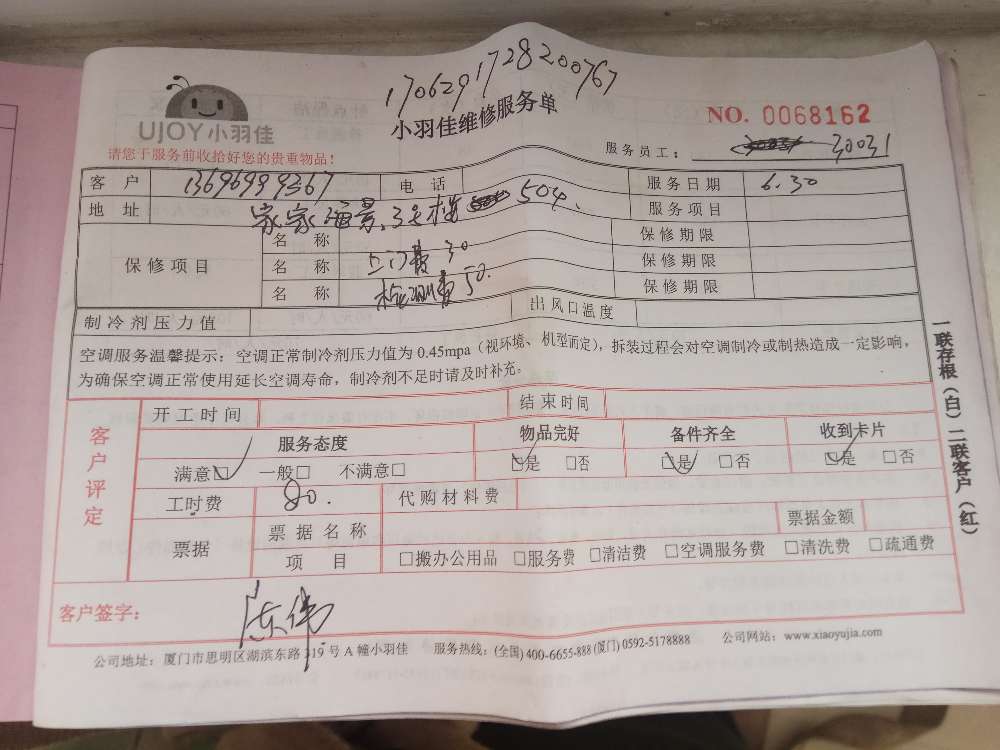 1706291728200767
小羽佳维修服务单
NO. 0068162
UJOY小羽佳
请您于服务前收拾好您的贵重物品!
服务员工: 30031
客户 13696999367 电话 服务日期 6.30
地址 家家海景 3号楼 504. 服务项目
保修项目
名称 保修期限
名称 上门费 30 保修期限
名称 检测费 50. 保修期限
制冷剂压力值 出风口温度
空调服务温馨提示:空调正常制冷剂压力值为 0.45mpa(视环境、机型而定),拆装过程会对空调制冷或制热造成一定影响,
为确保空调正常使用延长空调寿命,制冷剂不足时请及时补充。
客户评定
开工时间 结束时间
服务态度 物品完好 备件齐全 收到卡片
满意☑ 一般□ 不满意□ ☑是 □否 ☑是 □否 ☑是 □否
工时费 80. 代购材料费
票据 票据名称 票据金额
项目 □搬办公用品 □服务费 □清洁费 □空调服务费 □清洗费 □疏通费
客户签字: 陈伟
公司地址:厦门市思明区湖滨东路 319 号 A 幢小羽佳 服务热线:(全国) 400-6655-888 (厦门) 0592-5178888 公司网站:www.xiaoyujia.com
一联存根(白)二联客户(红)